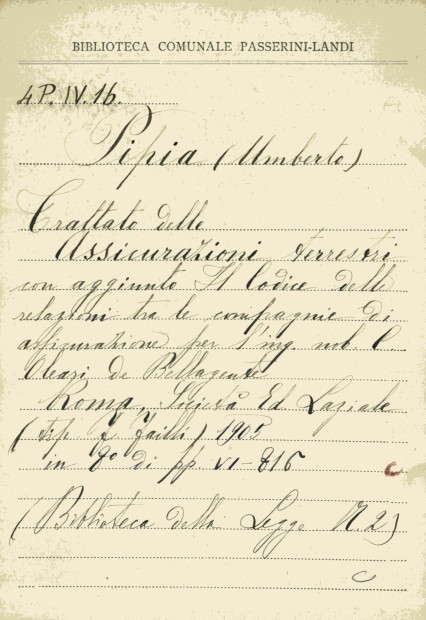 BIBLIOTECA COMUNALE PASSERINI-LANDI
4P. IV. 16.
Pipia (Umberto)
Trattato delle
Assicurazioni terrestri
con aggiunto Il Codice delle
relazioni tra le compagnie di
assicurazione per l'ing. nob. C
Oleari de Bellagente
Roma, Società Ed Laziale
(tip F ) 1905
in 8° di pp. VI-816
(Biblioteca della Legge N. 2)
C